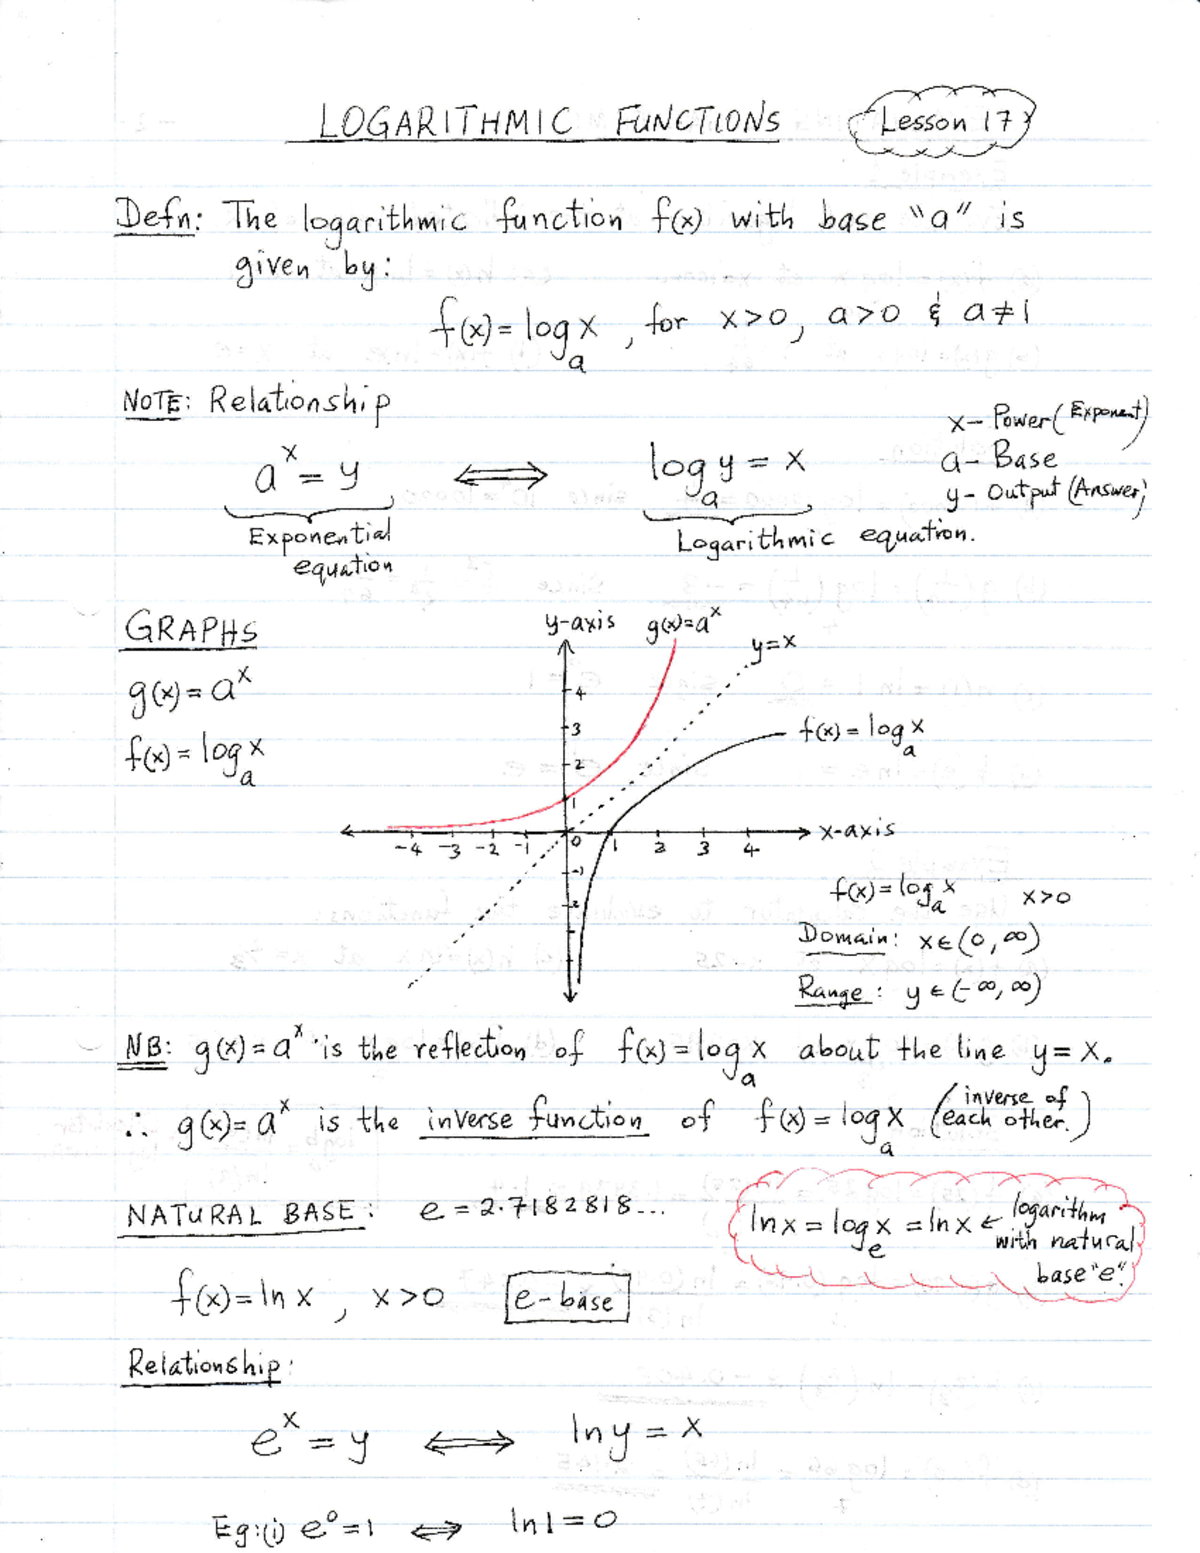 LOGARITHMIC FUNCTIONS Lesson 17
Defn: The logarithmic function f(x) with base "a" is
given by:
f(x) = logₐx , for x>0, a>0 & a≠1
NOTE: Relationship
x – Power (Exponent)
a – Base
y – Output (Answer)
aˣ = y ⟺ logₐy = x
Exponential
equation
Logarithmic equation.
GRAPHS
g(x) = aˣ
f(x) = logₐx
y-axis g(x)=aˣ
y=x
4
3
f(x) = logₐx
2
1
x-axis
-4 -3 -2 -1 0 1 2 3 4
-1
-2
f(x) = logₐx x>0
Domain: x∈(0,∞)
Range: y∈(-∞,∞)
NB: g(x) = aˣ is the reflection of f(x) = logₐx about the line y = x.
∴ g(x) = aˣ is the inverse function of f(x) = logₐx (inverse of
each other.)
NATURAL BASE: e = 2.7182818...
ln x = logₑx = ln x ← logarithm
with natural
base "e".
f(x) = ln x , x>0 e-base
Relationship:
eˣ = y ⟺ ln y = x
Eg:(i) e⁰ = 1 ⟺ ln 1 = 0